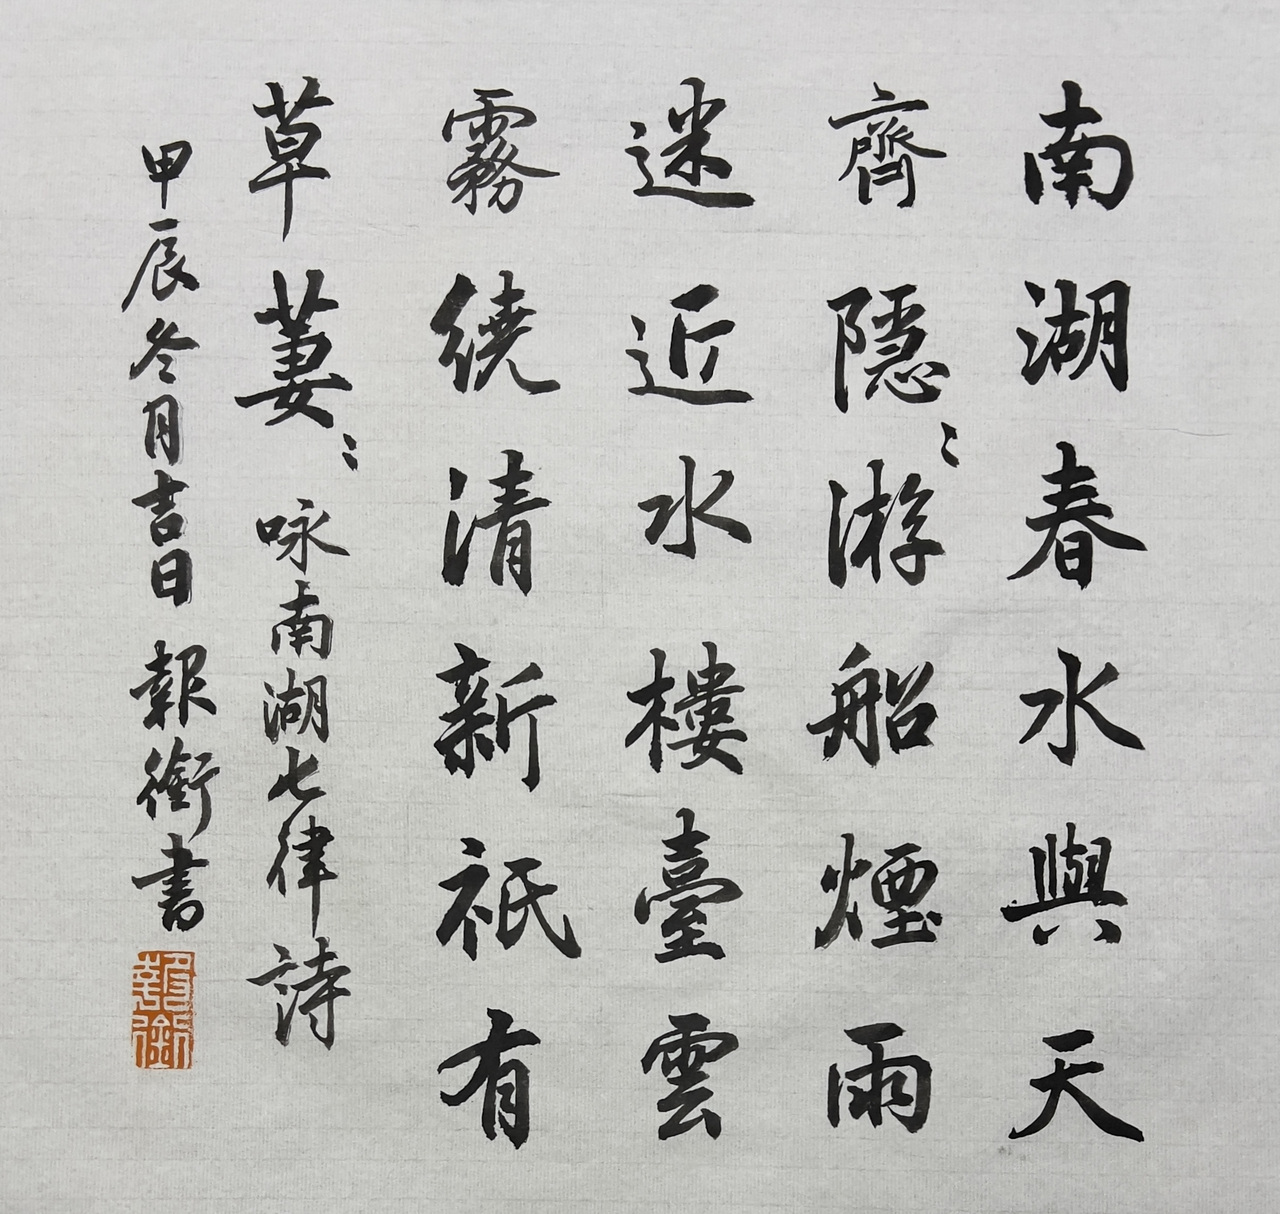 南湖春水與天
齊隱〻游船煙雨
迷近水樓臺雲
霧繞清新祇有
草萋〻咏南湖七律詩
甲辰冬月吉日報銜書
報銜